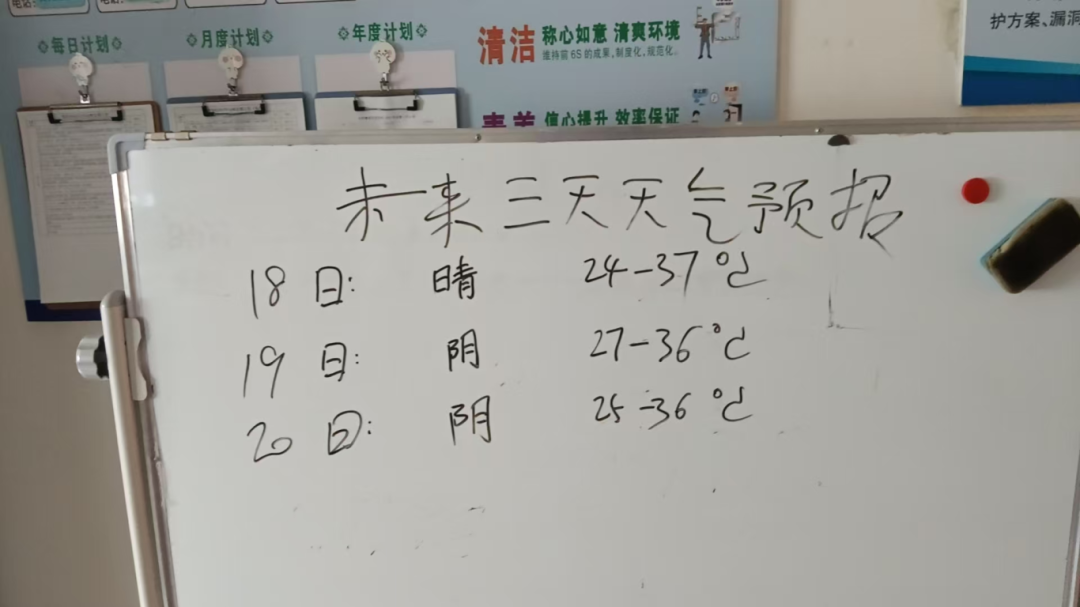 电话:
电话:
每日计划
月度计划
年度计划
清洁 称心如意 清爽环境
维持前6S的成果,制度化,规范化。
信心提升 效率保证
护方案、漏洞
未来三天天气预报
18日: 晴 24-37℃
19日: 阴 27-36℃
20日: 阴 25-36℃